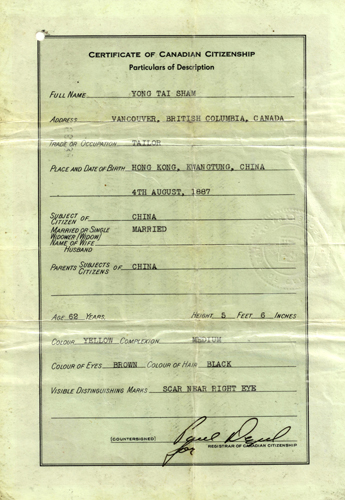 CERTIFICATE OF CANADIAN CITIZENSHIP
PARTICULARS OF DESCRIPTION
FULL NAME YONG TAI SHAM
ADDRESS VANCOUVER, BRITISH COLUMBIA, CANADA
TRADE OR OCCUPATION TAILOR
PLACE AND DATE OF BIRTH HONG KONG, KWANGTUNG, CHINA
4TH AUGUST, 1887
SUBJECT OF CHINA
CITIZEN
MARRIED OR SINGLE MARRIED
WIDOWER (WIDOW)
NAME OF WIFE
HUSBAND
PARENTS SUBJECTS OF CHINA
CITIZENS
AGE 62 YEARS HEIGHT 5 FEET 6 INCHES
COLOUR YELLOW COMPLEXION MEDIUM
COLOUR OF EYES BROWN COLOUR OF HAIR BLACK
VISIBLE DISTINGUISHING MARKS SCAR NEAR RIGHT EYE
(COUNTERSIGNED)
for REGISTRAR OF CANADIAN CITIZENSHIP